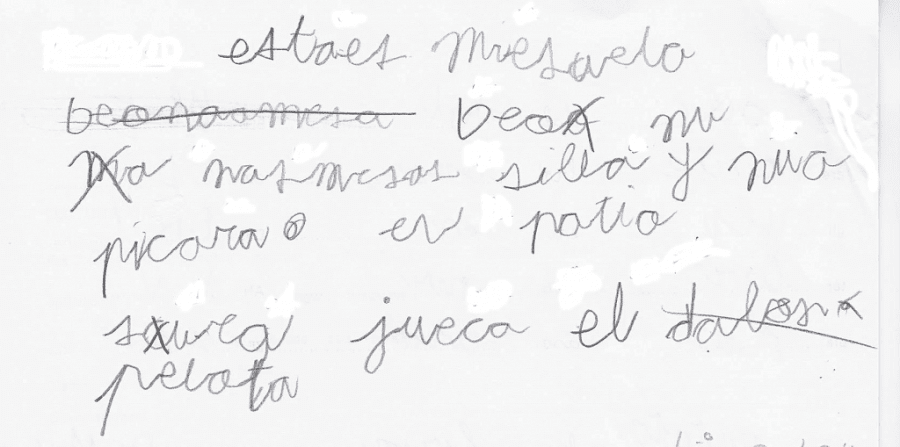 estaes miesavela
beonaomesa beoa nu
na nasmesas silla y nua
picara o en patio
jueca el dalosn
pelota